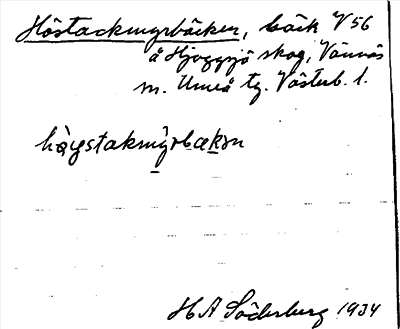 Höstackmyrbäcken, bäck V 56
å Hjoggsjö skog, Vännäs
sn. Umeå tg. Västerb. l.
hǫ̀ɣstakmy̱rbæḵən
H A Söderberg 1934